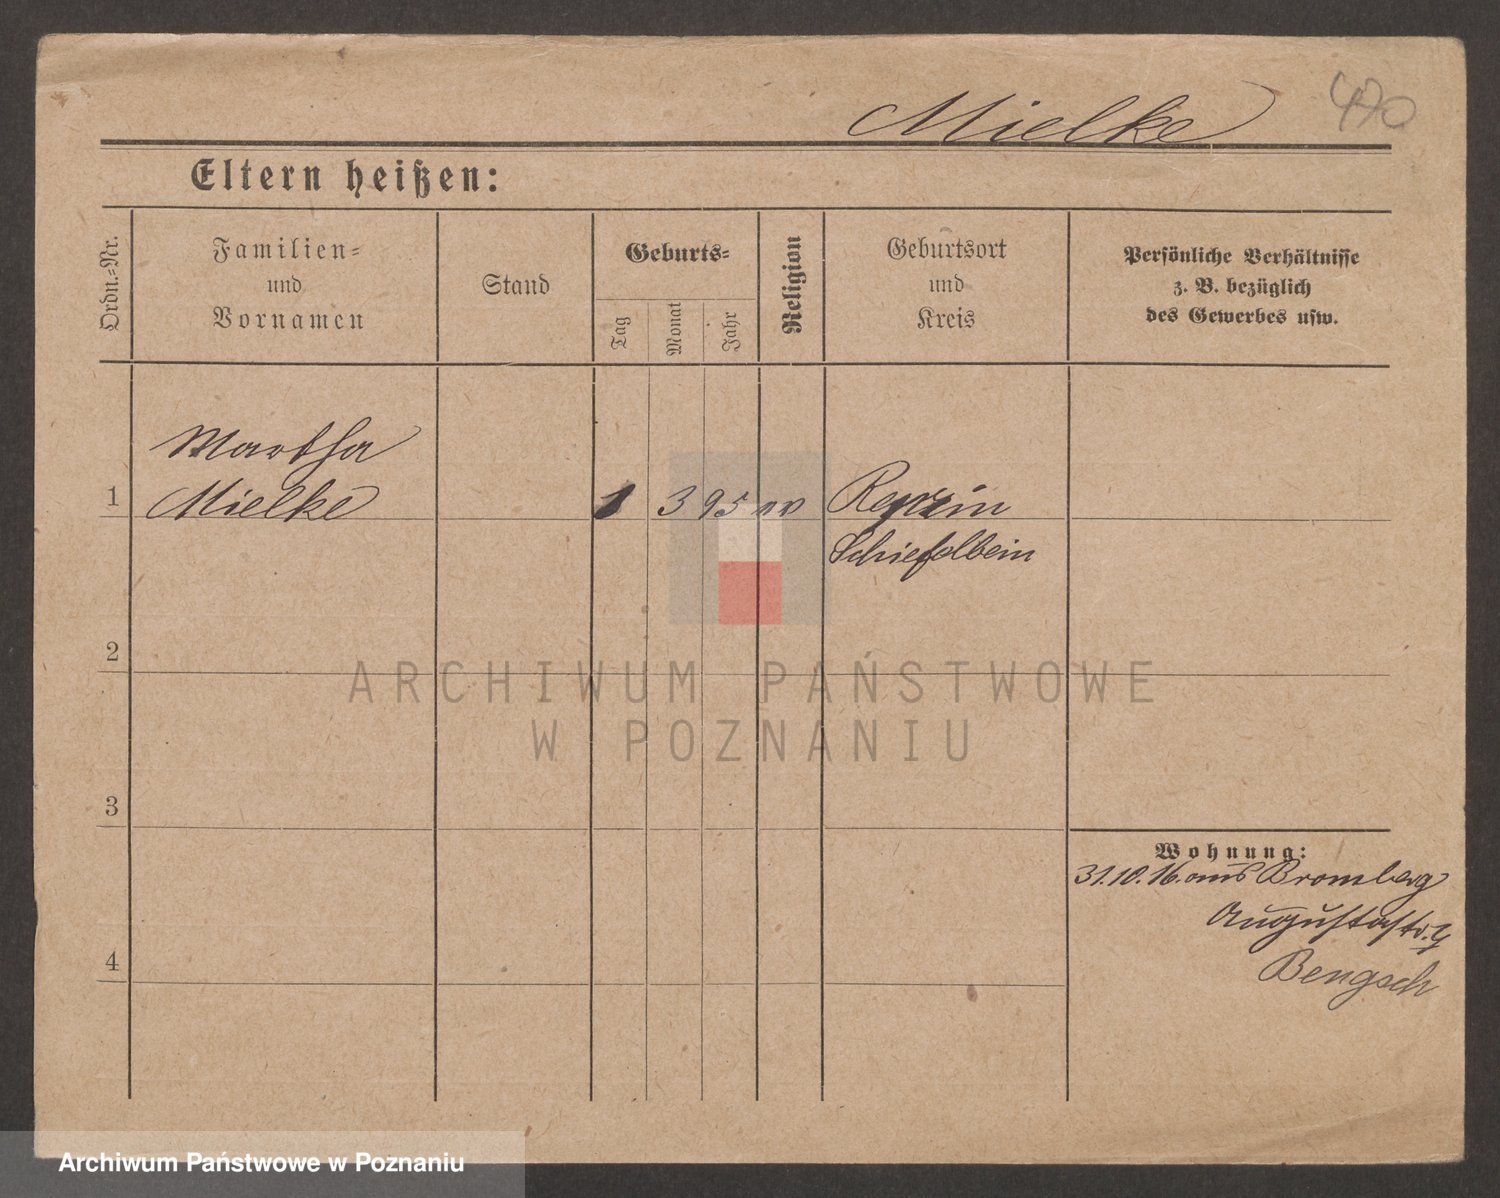 Mielke
470
Eltern heißen:
Ordn.=Nr.
Familien=
und
Vornamen
Stand
Geburts=
Tag
Monat
Jahr
Religion
Geburtsort
und
Kreis
Persönliche Verhältnisse
z. B. bezüglich
des Gewerbes usw.
Martha
1 Mielke 1 3 95
Schiefelbein
2
ARCHIWUM PAŃSTWOWE
W POZNANIU
3
Wohnung:
31.10.16. aus Bromberg
Augustastr.
4
Bengsch
Archiwum Państwowe w Poznaniu